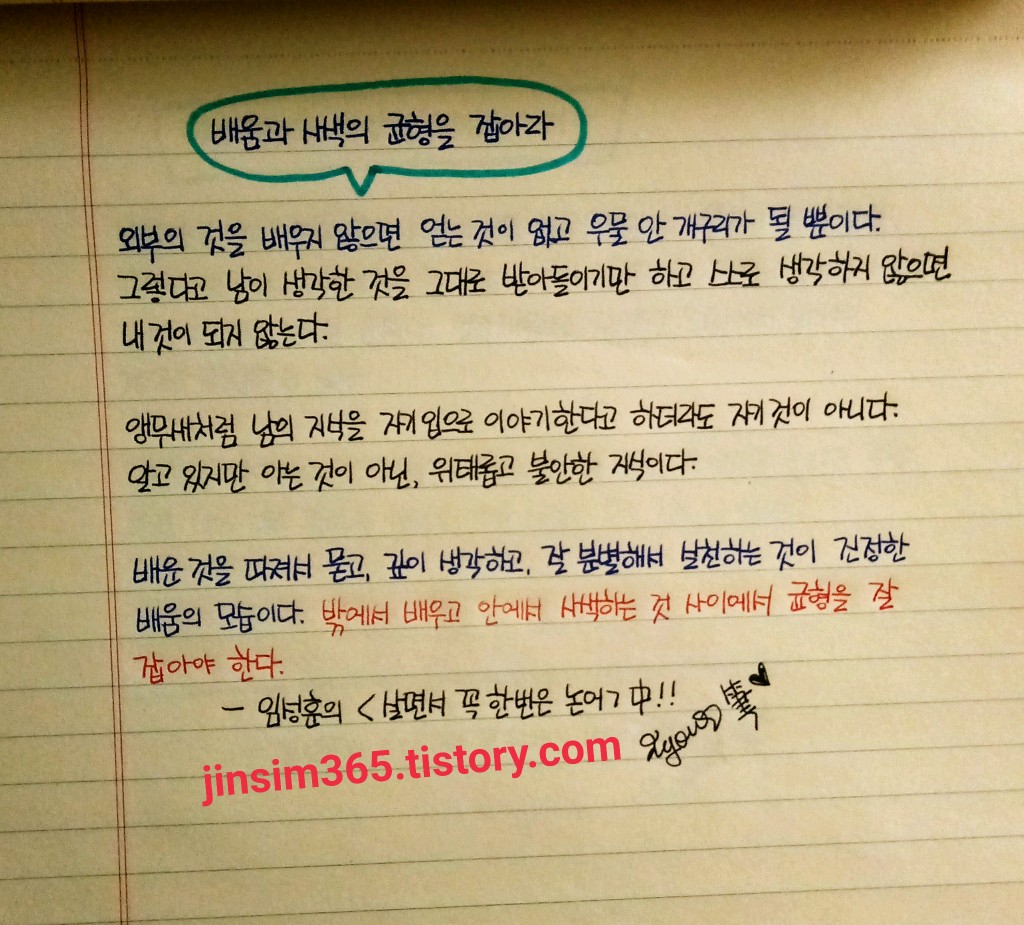 배움과 사색의 균형을 잡아라
외부의 것을 배우지 않으면 얻는 것이 없고 우물 안 개구리가 될 뿐이다.
그렇다고 남이 생각한 것을 그대로 받아들이기만 하고 스스로 생각하지 않으면
내 것이 되지 않는다.
앵무새처럼 남의 지식을 자기 입으로 이야기한다고 하더라도 자기 것이 아니다.
알고 있지만 아는 것이 아닌, 위태롭고 불안한 지식이다.
배운 것을 따져서 묻고, 깊이 생각하고, 잘 분별해서 실천하는 것이 진정한
배움의 모습이다. 밖에서 배우고 안에서 사색하는 것 사이에서 균형을 잘
잡아야 한다.
- 임성훈의 <살면서 꼭 한번은 논어> 中!!
jinsim365.tistory.com